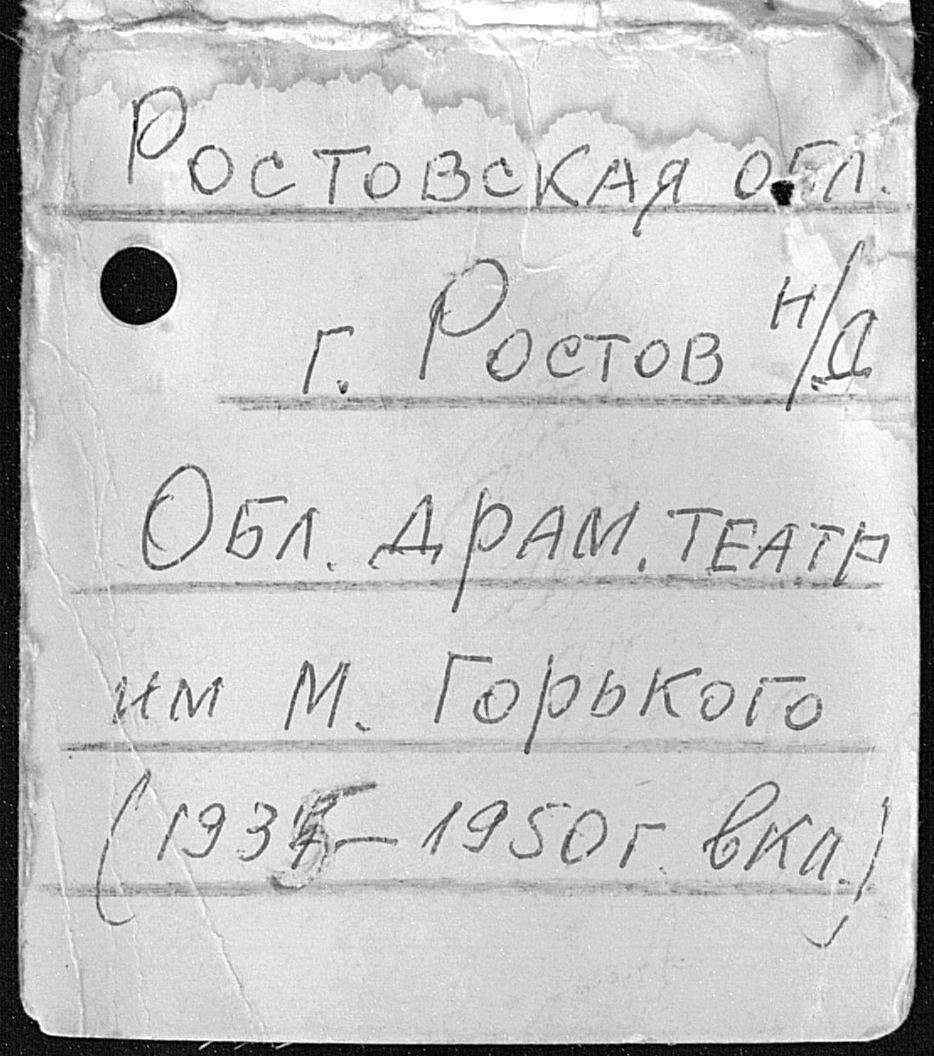 Ростовская обл.
г. Ростов н/Д
Обл. драм. театр
им М. Горького
(1935–1950г. вкл.)